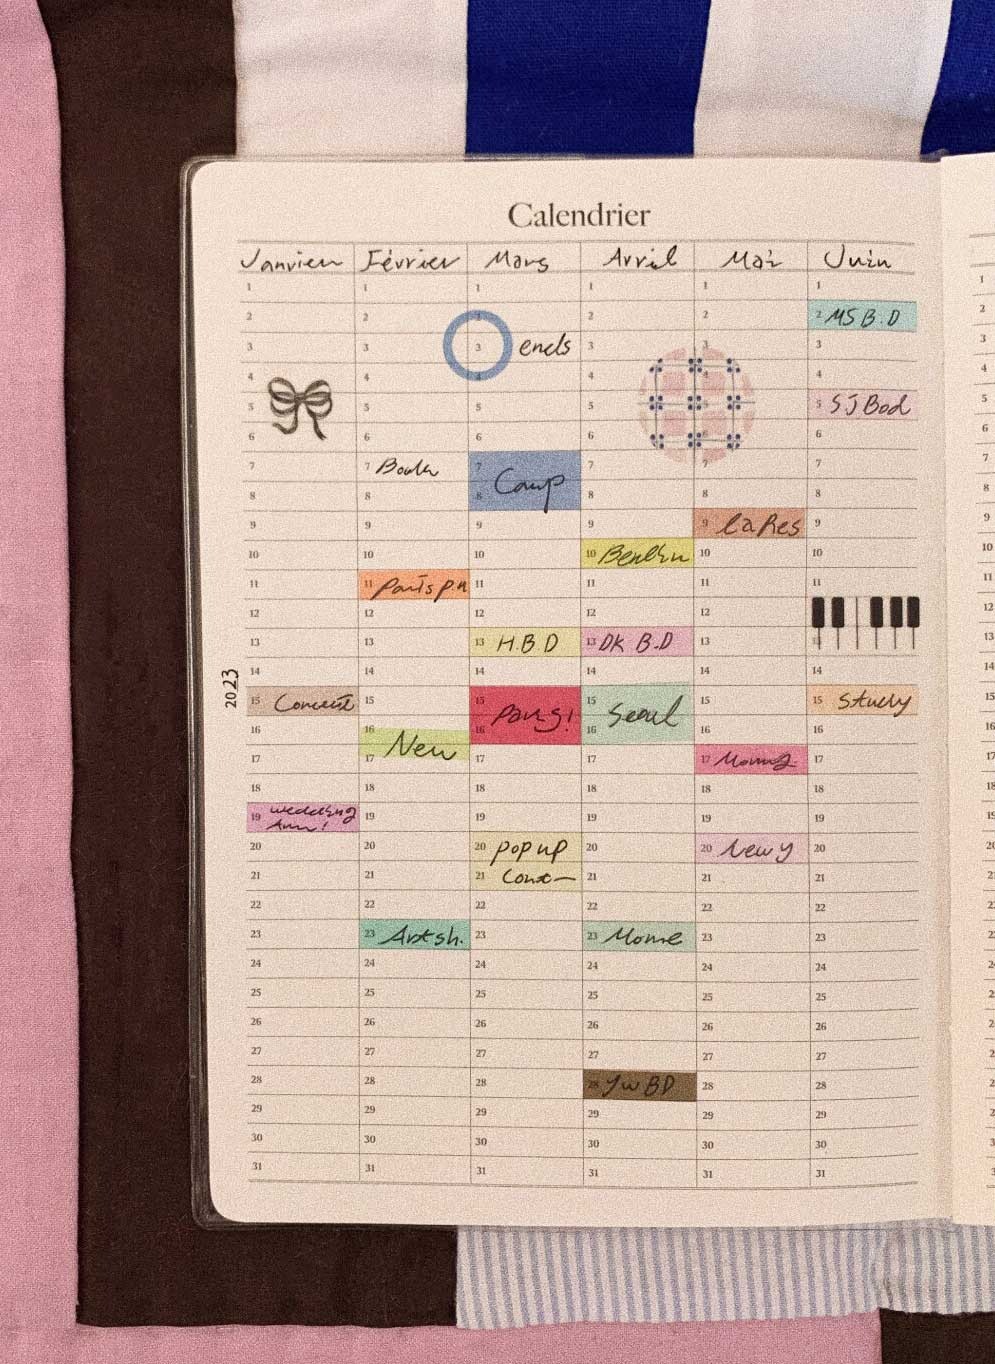 Calendrier
Janvier Février Mars Avril Mai Juin
1 1 1 1 1 1
2 2 2 2 2 2 MS B.D
3 3 3 ends 3 3 3
4 4 4 4 4 4
5 5 5 5 5 5 SJ Bod
6 6 6 6 6 6
7 7 7 7 7 7
8 8 8 Camp 8 8 8
9 9 9 9 9 la Res 9
10 10 10 10 10 10
11 11 Paris p.n 11 11 11 11
12 12 12 12 12
13 13 13 H.B.D 13 DK B.D 13 13
14 14 14 14 14 14
15 Concert 15 15 15 Seoul 15 15 Study
16 16 New 16 16 16 16
17 17 17 17 17 17
18 18 18 18 18 18
19 wedding 19 19 19 19 19
Ann!
20 20 20 pop up 20 20 New y 20
21 21 21 21 21 21
22 22 22 22 22 22
23 23 Art sh. 23 23 Mome 23 23
24 24 24 24 24 24
25 25 25 25 25 25
26 26 26 26 26 26
27 27 27 27 27 27
28 28 28 28 YW BD 28 28
29 29 29 29 29 29
30 30 30 30 30 30
31 31 31 31 31 31
2023